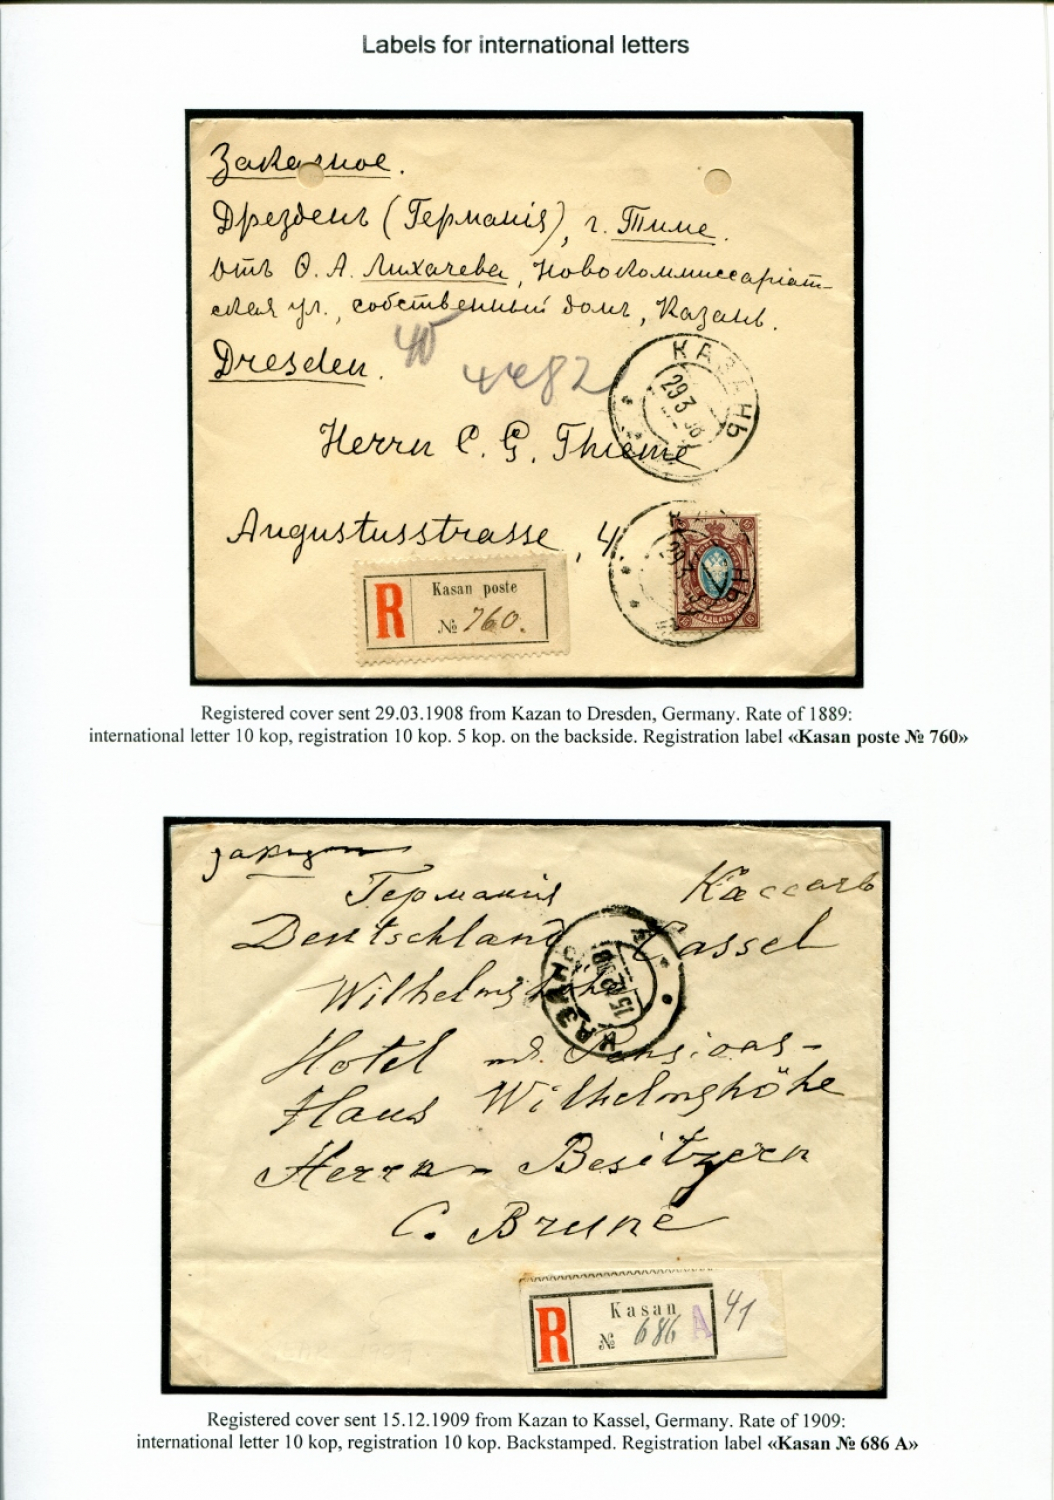 Labels for international letters
Заказное.
Дрезденъ (Германія), г. Тиме.
Отъ О. А. Лихачева, Новокоммиссаріат-
ская ул., собственный домъ, Казань.
Dresden.
4482
КАЗАНЬ
29 3 08
Herrn C. G. Thieme
Augustusstrasse, 4.
R
Kasan poste
№ 760.
Registered cover sent 29.03.1908 from Kazan to Dresden, Germany. Rate of 1889:
international letter 10 kop, registration 10 kop. 5 kop. on the backside. Registration label «Kasan poste № 760»
Германія Кассель
Deutschland Cassel
КАЗАНЬ
Wilhelmshöhe
Hotel und. Pensions-
Haus Wilhelmshöhe
Herrn Besitzern
C. Brune
R
Kasan
№ 686 A
41
Registered cover sent 15.12.1909 from Kazan to Kassel, Germany. Rate of 1909:
international letter 10 kop, registration 10 kop. Backstamped. Registration label «Kasan № 686 A»